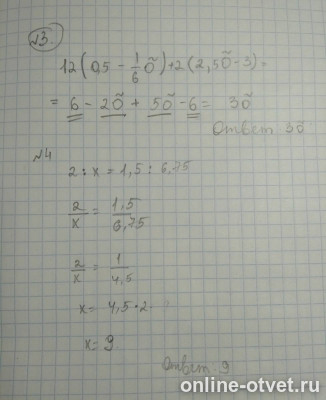 №3.
12(0,5 - 1/6 õ) + 2(2,5õ - 3) =
= 6 - 2õ + 5õ - 6 = 3õ
Ответ 3õ
№4
2 : x = 1,5 : 6,75
2/x = 1,5/6,75
2/x = 1/4,5
x = 4,5 · 2
x = 9
Ответ. 9
online-otvet.ru